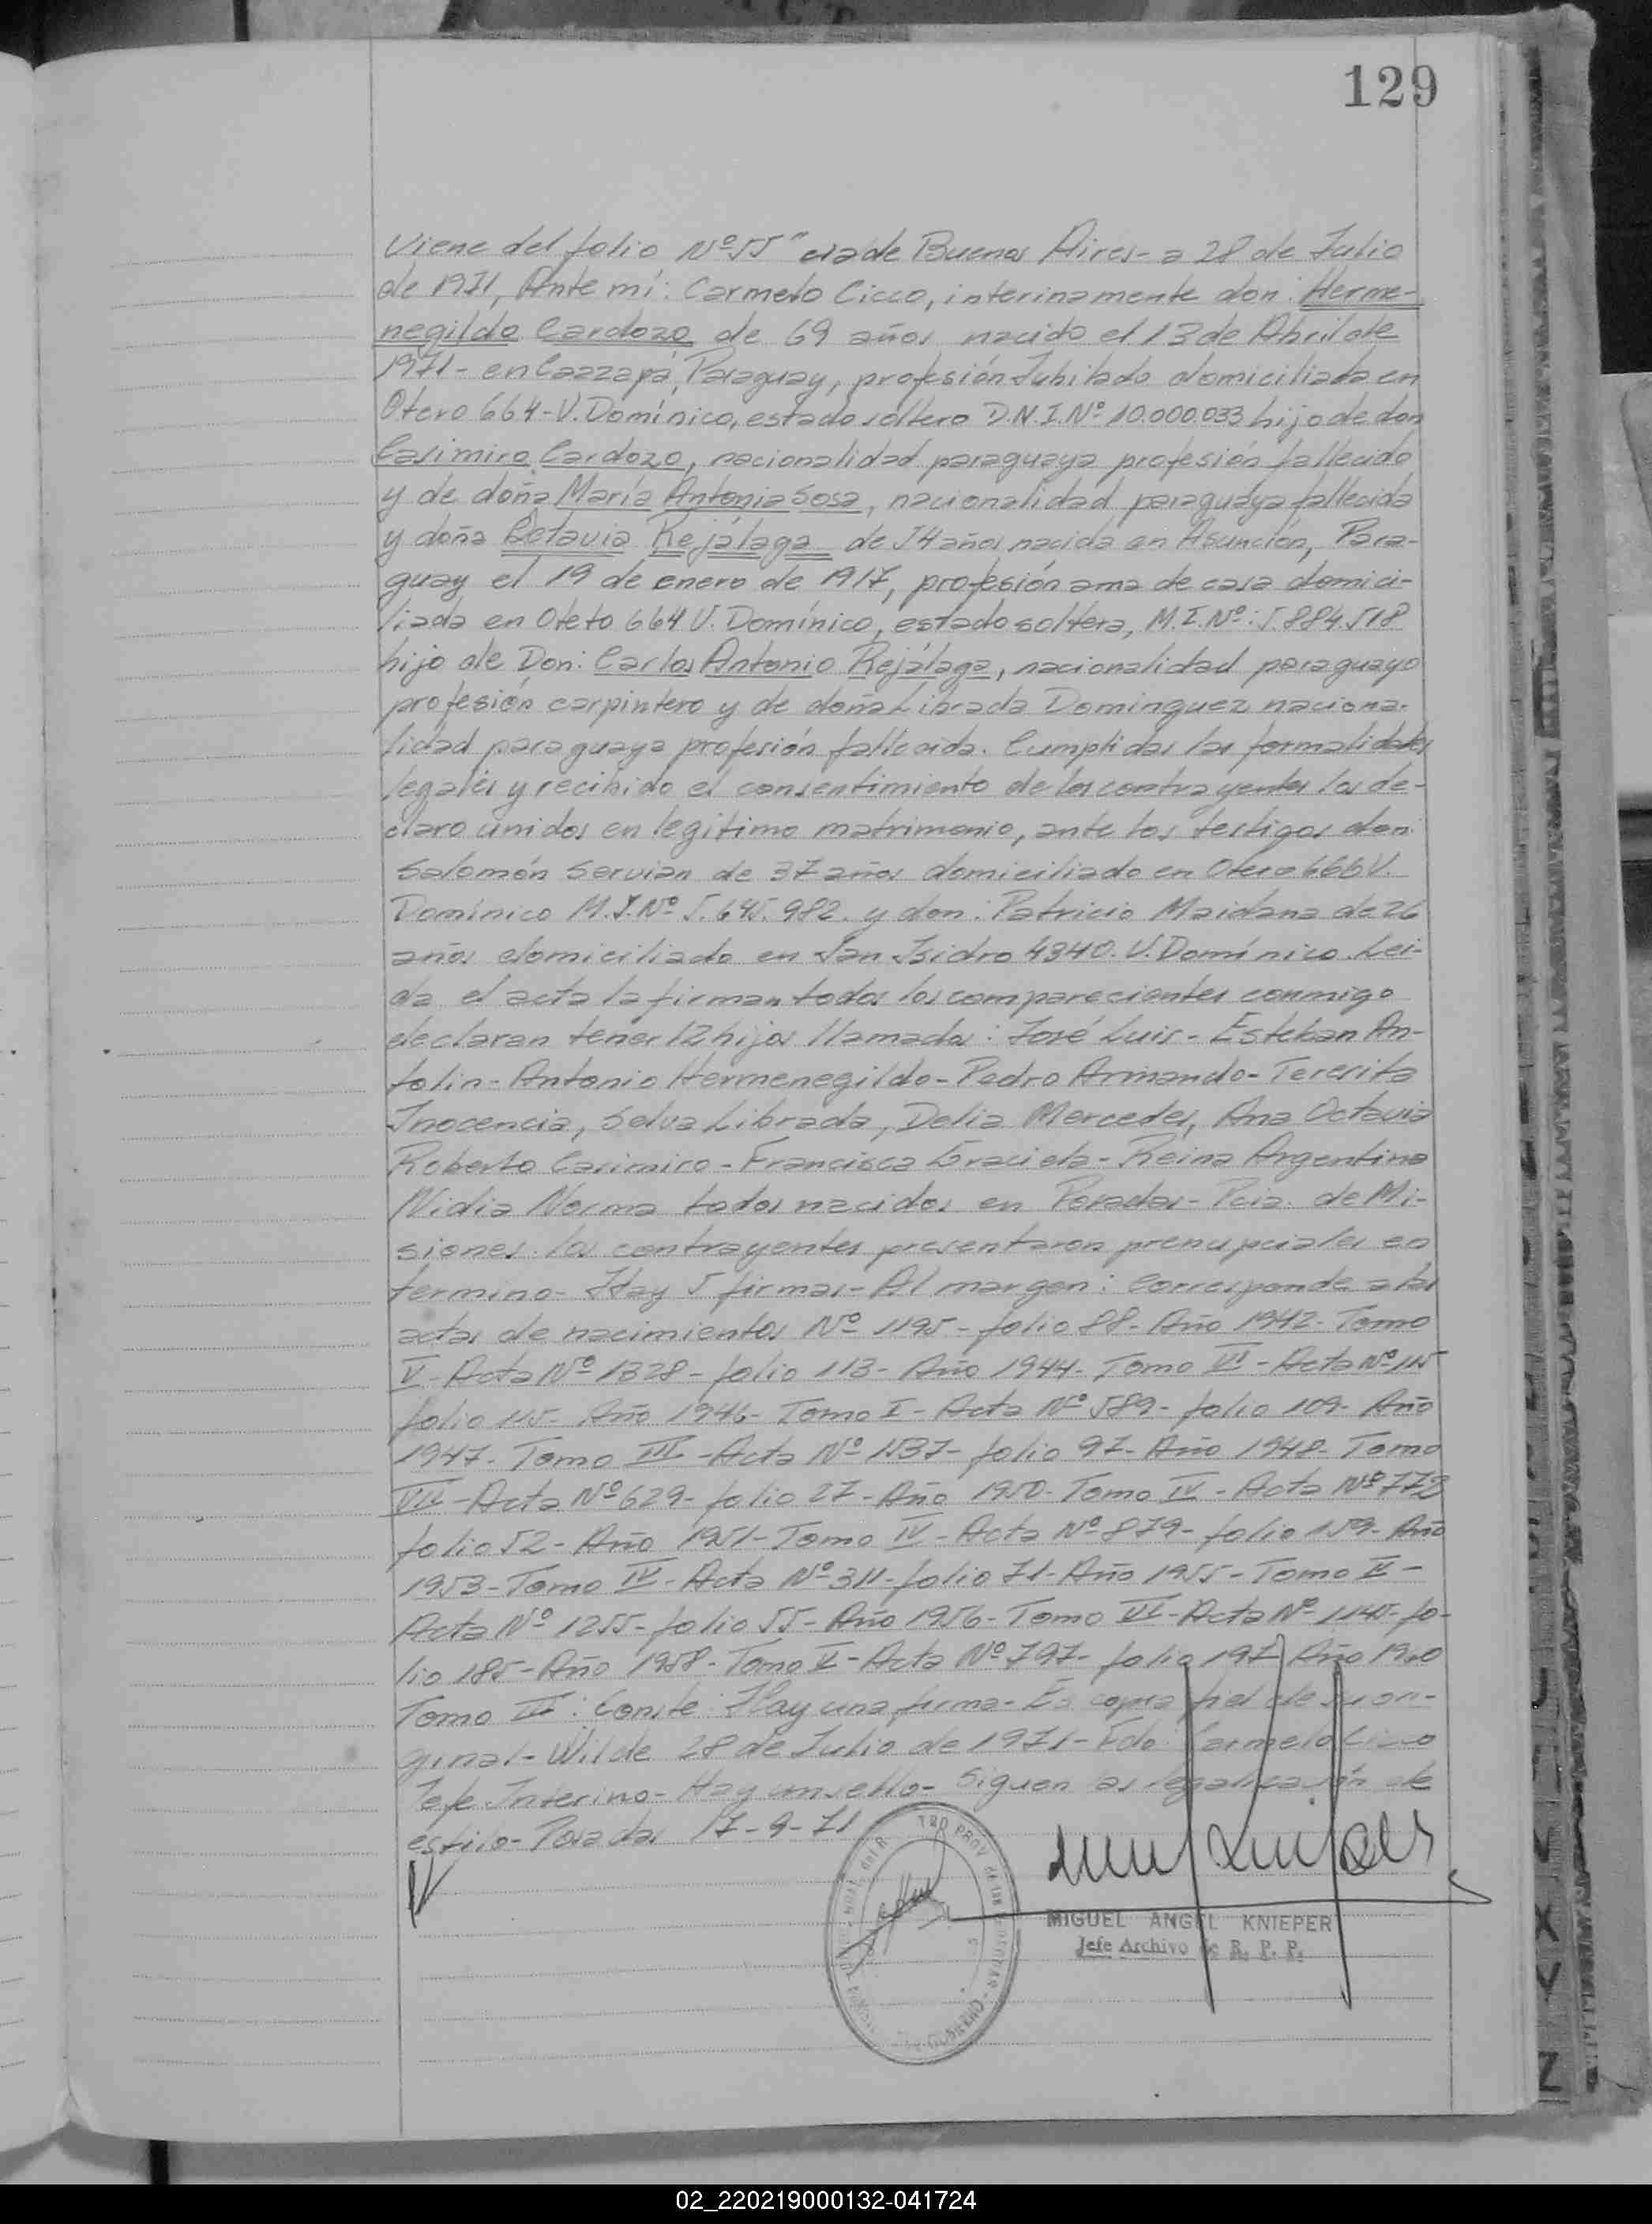 129
Viene del folio Nº 55" cia de Buenos Aires- a 28 de Julio
de 1971, Ante mí: Carmelo Cicco, interinamente don: Herme-
negildo Cardozo de 69 años nacido el 13 de Abril de
1971- en Caazapá, Paraguay, profesión Jubilado domiciliada en
Otero 664-V. Domínico, estado soltero D.N.I. Nº 10.000.033 hijo de don
Casimiro Cardozo, nacionalidad paraguaya profesión fallecido
y de doña María Antonia Sosa, nacionalidad paraguaya fallecida
y doña Octavia Rejálaga de 54 años nacida en Asunción, Para-
guay el 19 de enero de 1917, profesión ama de casa domici-
liada en Oteto 664 V. Domínico, estado soltera, M.I. Nº: 5.884.518
hijo de Don: Carlos Antonio Rejálaga, nacionalidad paraguayo
profesión carpintero y de doña Librada Dominguez naciona-
lidad paraguaya profesión fallecida. Cumplidas las formalidades
legales y recibido el consentimiento de los contrayentes los de-
claro unidos en legítimo matrimonio, ante los testigos don:
Salomón Servian de 37 años domiciliado en Otero 666 V.
Domínico M.I. Nº 5.645.982. y don: Patricio Maidana de 26
años domiciliado en San Isidro 4340. V. Domínico. Lei-
da el acta la firman todos los comparecientes conmigo
declaran tener 12 hijos llamados: José Luis- Esteban An-
tolin- Antonio Hermenegildo- Pedro Armando- Teresita
Inocencia, Selva Librada, Delia Mercedes, Ana Octavia
Roberto Casimiro- Francisca Graciela- Reina Argentina
Nidia Norma todos nacidos en Posadas- Pcia. de Mi-
siones. los contrayentes presentaron prenupciales en
termino- Hay 5 firmas- Al margen: Corresponde a las
actas de nacimientos Nº 1195- folio 88- Año 1942- Tomo
V- Acta Nº 1328- folio 113- Año 1944- Tomo VI- Acta Nº 115
folio 115- Año 1946- Tomo I- Acta Nº 589- folio 109- Año
1947- Tomo III- Acta Nº 1537- folio 97- Año 1948- Tomo
VII- Acta Nº 629- folio 27- Año 1950- Tomo IV- Acta Nº 772
folio 52- Año 1951- Tomo IV- Acta Nº 879- folio 159- Año
1953- Tomo IV- Acta Nº 311- folio 71- Año 1955- Tomo II-
Acta Nº 1255- folio 55- Año 1956- Tomo VI- Acta Nº 1145- fo-
lio 185- Año 1958- Tomo V- Acta Nº 797- folio 197 Año 1960
Tomo IV: Conste: Hay una firma- Es copia fiel de su ori-
ginal- Wilde 28 de Julio de 1971- Fdo Carmelo Cicco
Jefe Interino- Hay un sello- Siguen las legalización de
estilo- Posadas 17-9-71
MIGUEL ANGEL KNIEPER
Jefe Archivo de R. P. P.
02_220219000132-041724